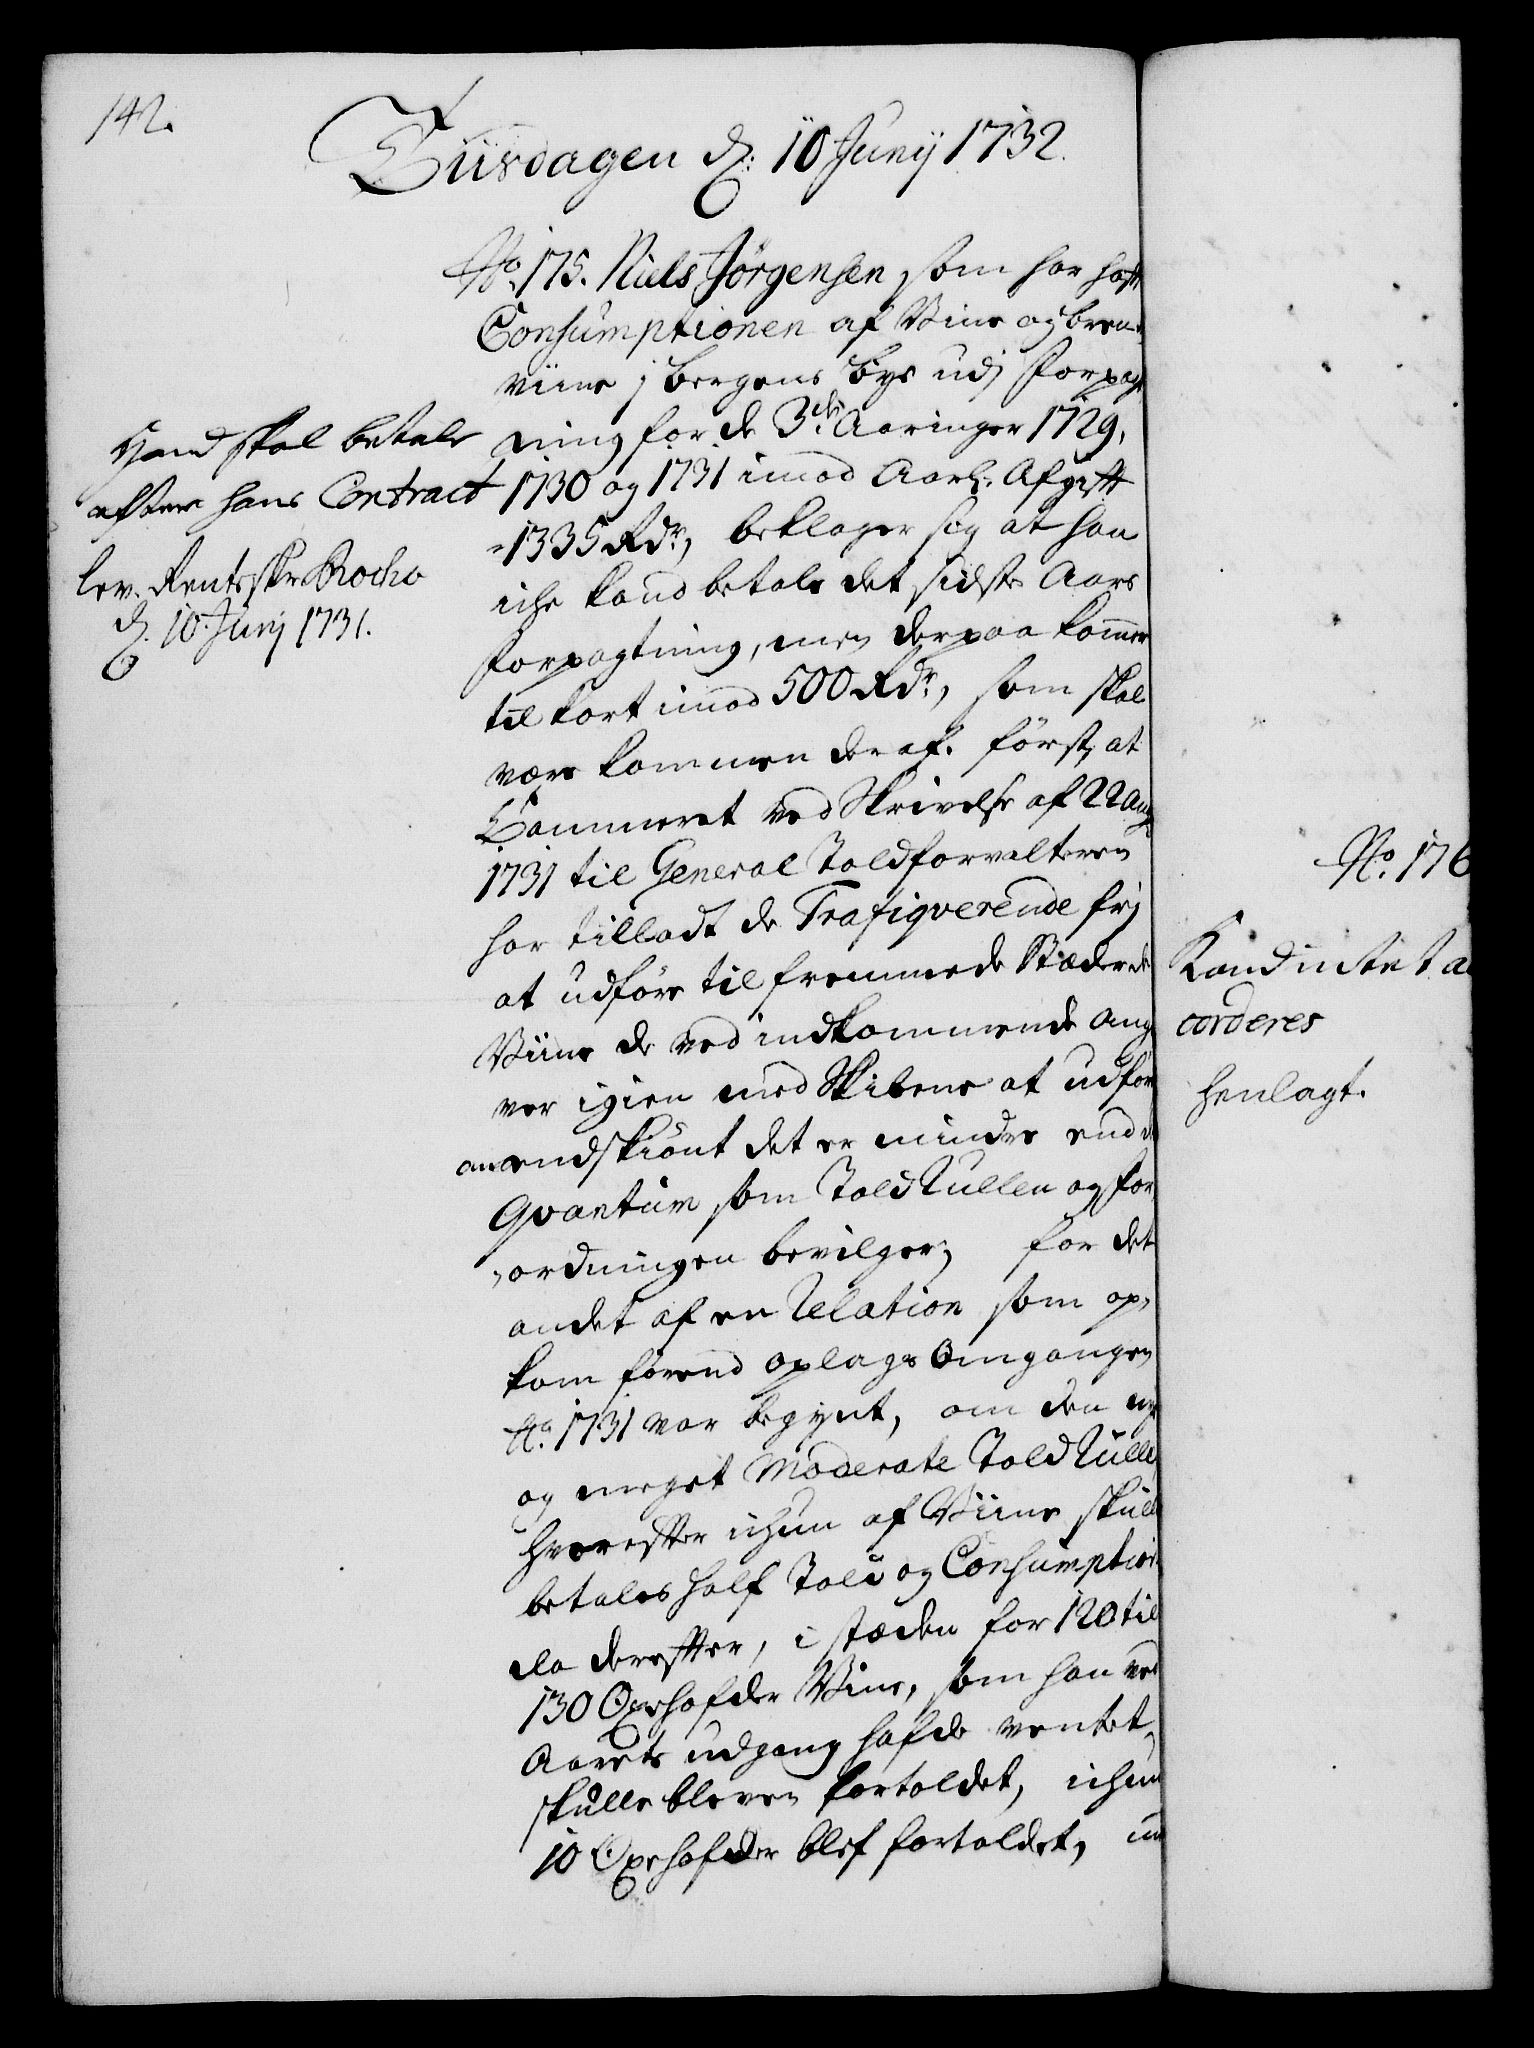 142.
Tiisdagen d: 10 Junij 1732.
No. 175. Niels Jörgensen som har haft
Consumptionen af Viine og bren-
viine i bergens bye udj forpagt
ning for de 3de Aaringer 1729,
1730 og 1731 imod Aarl: Afgifft
1335 Rdr, beklager sig at han
iche kand betale det sidste Aars
forpagtning, men derpaa kommer
til kort imod 500 Rdr, som skal
være kommen deraf. först, at
Cammeret ved Skrivelse af 22 Aug
1731 til General Toldforvalteren
har tilladt de Trafiqverende frj
at udföre til fremmede Stæder de
Viine de ved indkommende ang
ver igien med Skibene at udför
an endskiönt det er mindre end d
Qvantum som Told Rullen og for
ordningen bevilger, for det
andet af en Relation som op-
kom förend oplags Omgangen
Ao. 1731 var begynt, om den ny
og meget Moderate Told Rulle
hvorefter ichun af Viine skull
betales half Told og Consumption
da derefter, i stæden for 120 til
130 Oxehofder Viine, som han ved
Aarets udgang hafde ventet,
skulle bleven fortoldet, ichun
10 Oxehofder blef fortoldet,
Hand skal betale
efter hans Contract
lev. Rentesskr Rocho
d. 10 Junj 1731.
No. 176
Kand intet a
corderes
henlagt.